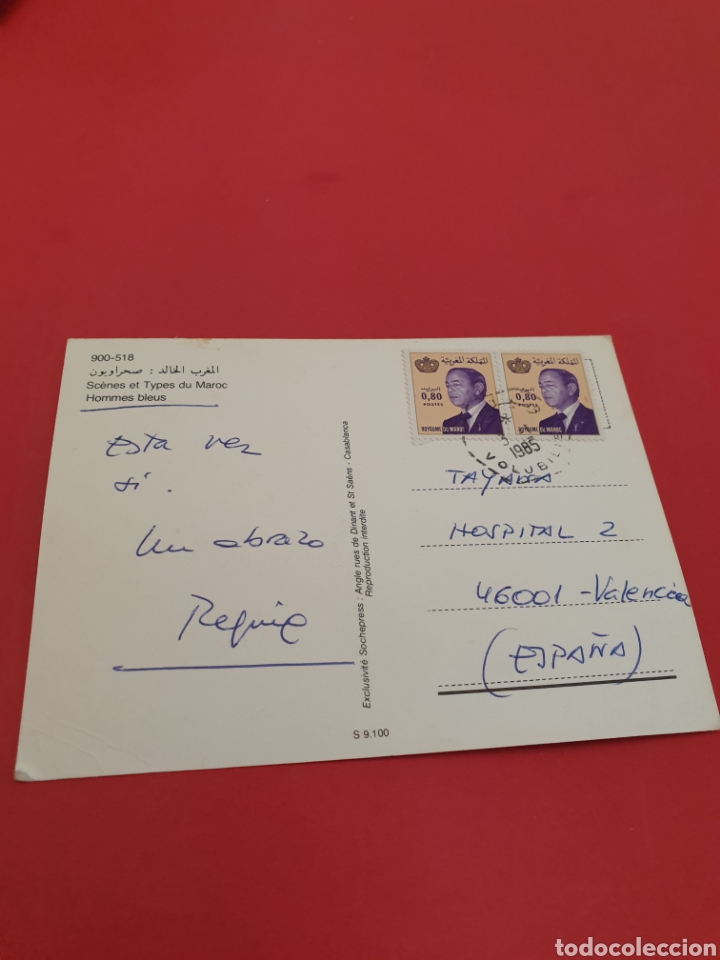 900-518
المغرب الخالد : صحراويون
Scènes et Types du Maroc
Hommes bleus
Esta vez
sí.
Un abrazo
Exclusivité Sochepress : Angle rues de Dinant et St Saëns - Casablanca
Reproduction interdite
S 9.100
المملكة المغربية
0,80
POSTES
ROYAUME DU MAROC
المملكة المغربية
0,80
POSTES
ROYAUME DU MAROC
1985
VOLUBILIS
HOSPITAL 2
46001 - Valencia
(ESPAÑA)
todocoleccion